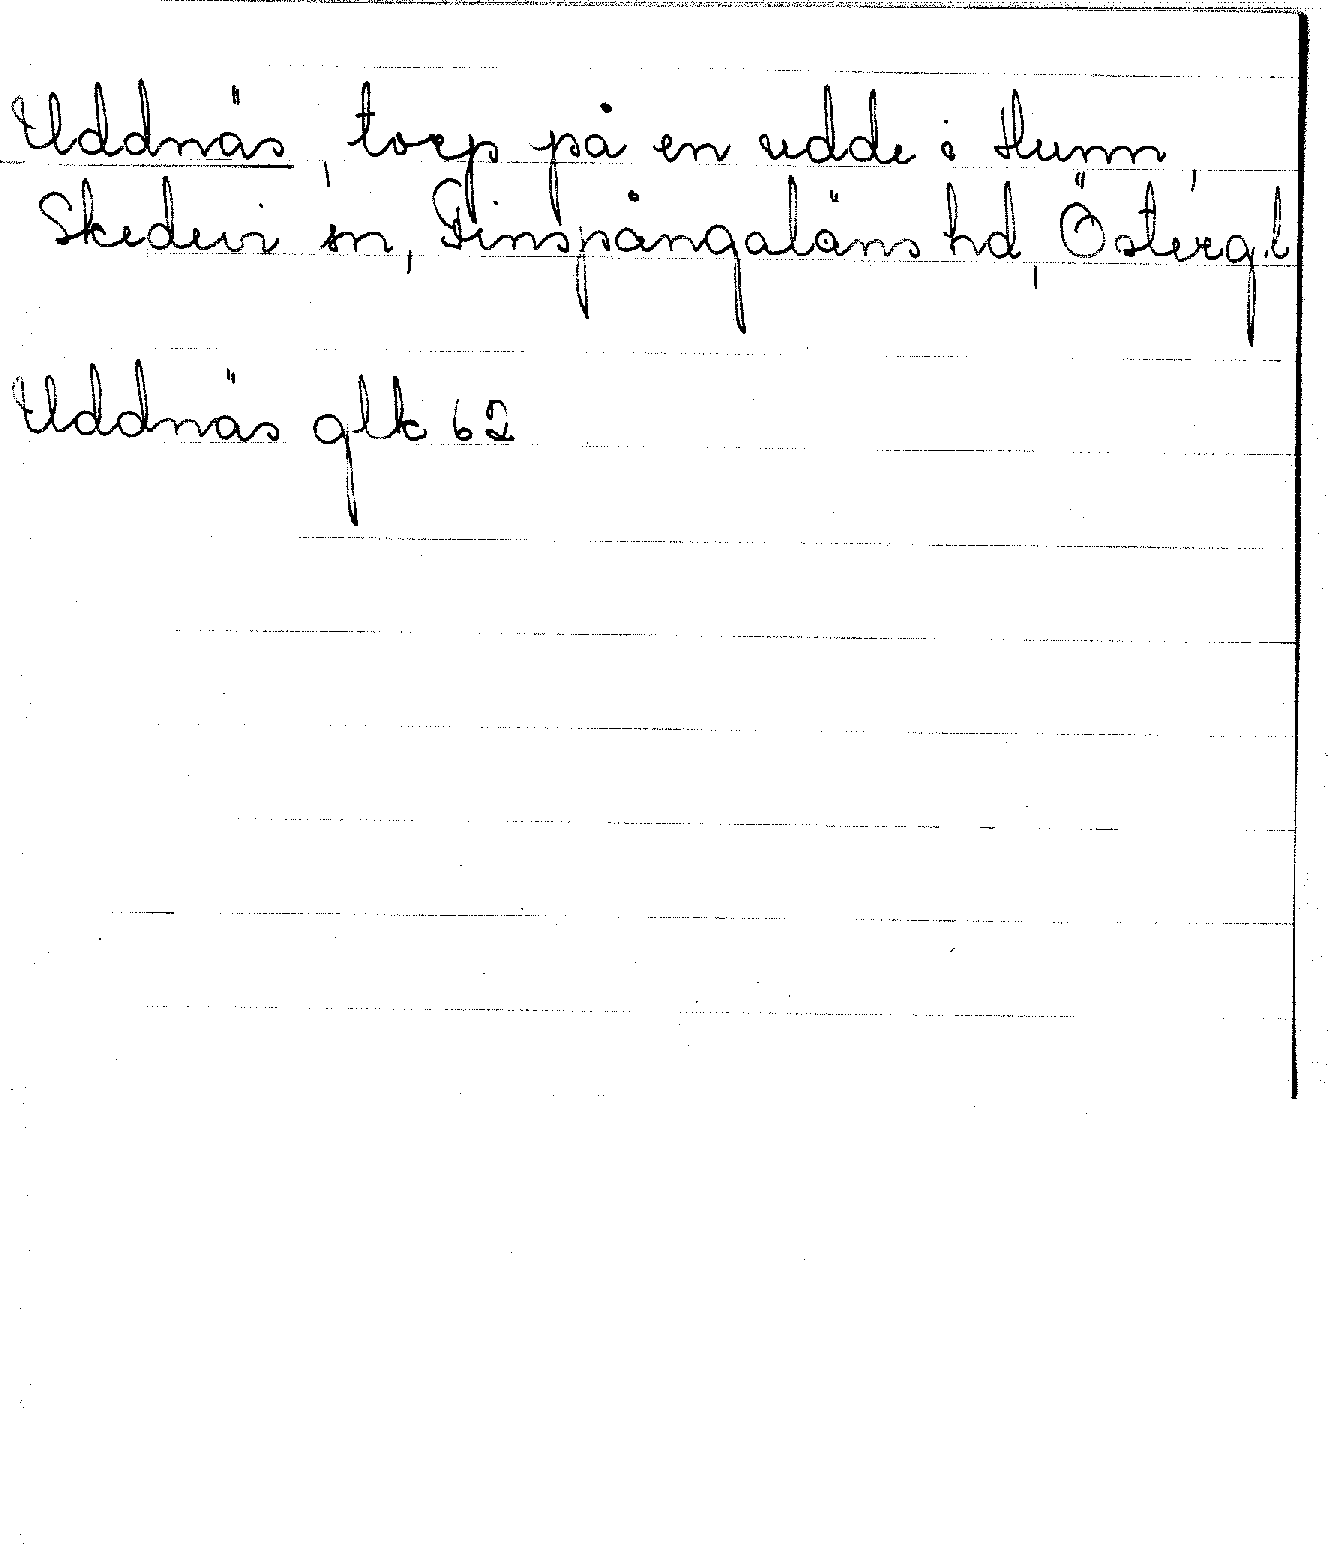 Uddnäs, torp på en udde i Hunn,
Skedevi sn, Finspångaläns hd, Österg.l
Uddnäs glk 62